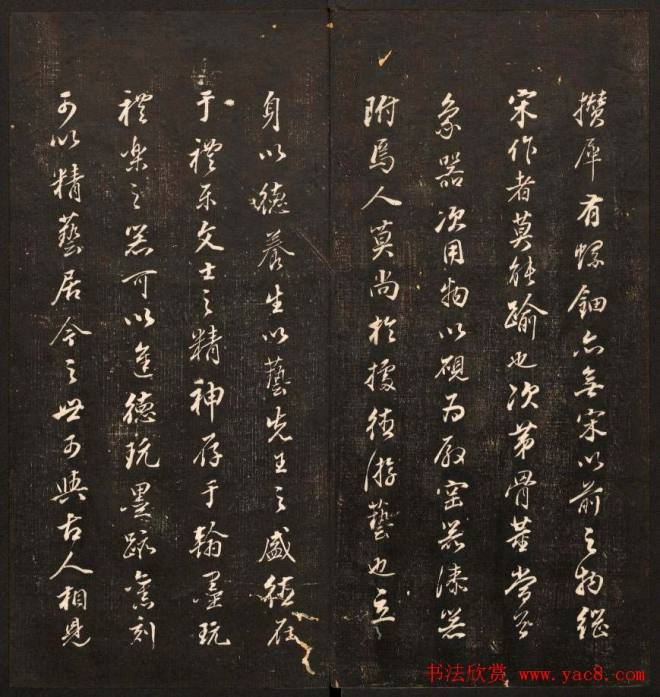 攢犀有螺鈿亦無宋以前之物繼
宋作者莫能踰也次第骨董當
象器次用物以硯為殿窑器漆器
附焉人莫尚於據德游藝也立
身以德養生以藝先王之盛德存
于禮樂文士之精神存于翰墨玩
禮樂之器可以進德玩墨跡舊刻
可以精藝居今之世可與古人相見
书法欣赏 www.yac8.com